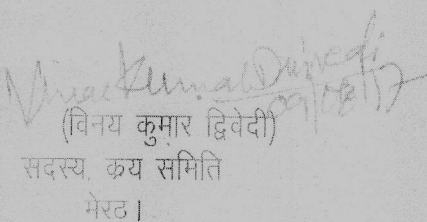 Vinae Kumar Dwivedi
09/08/17
(विनय कुमार द्विवेदी)
सदस्य, क्रय समिति
मेरठ।